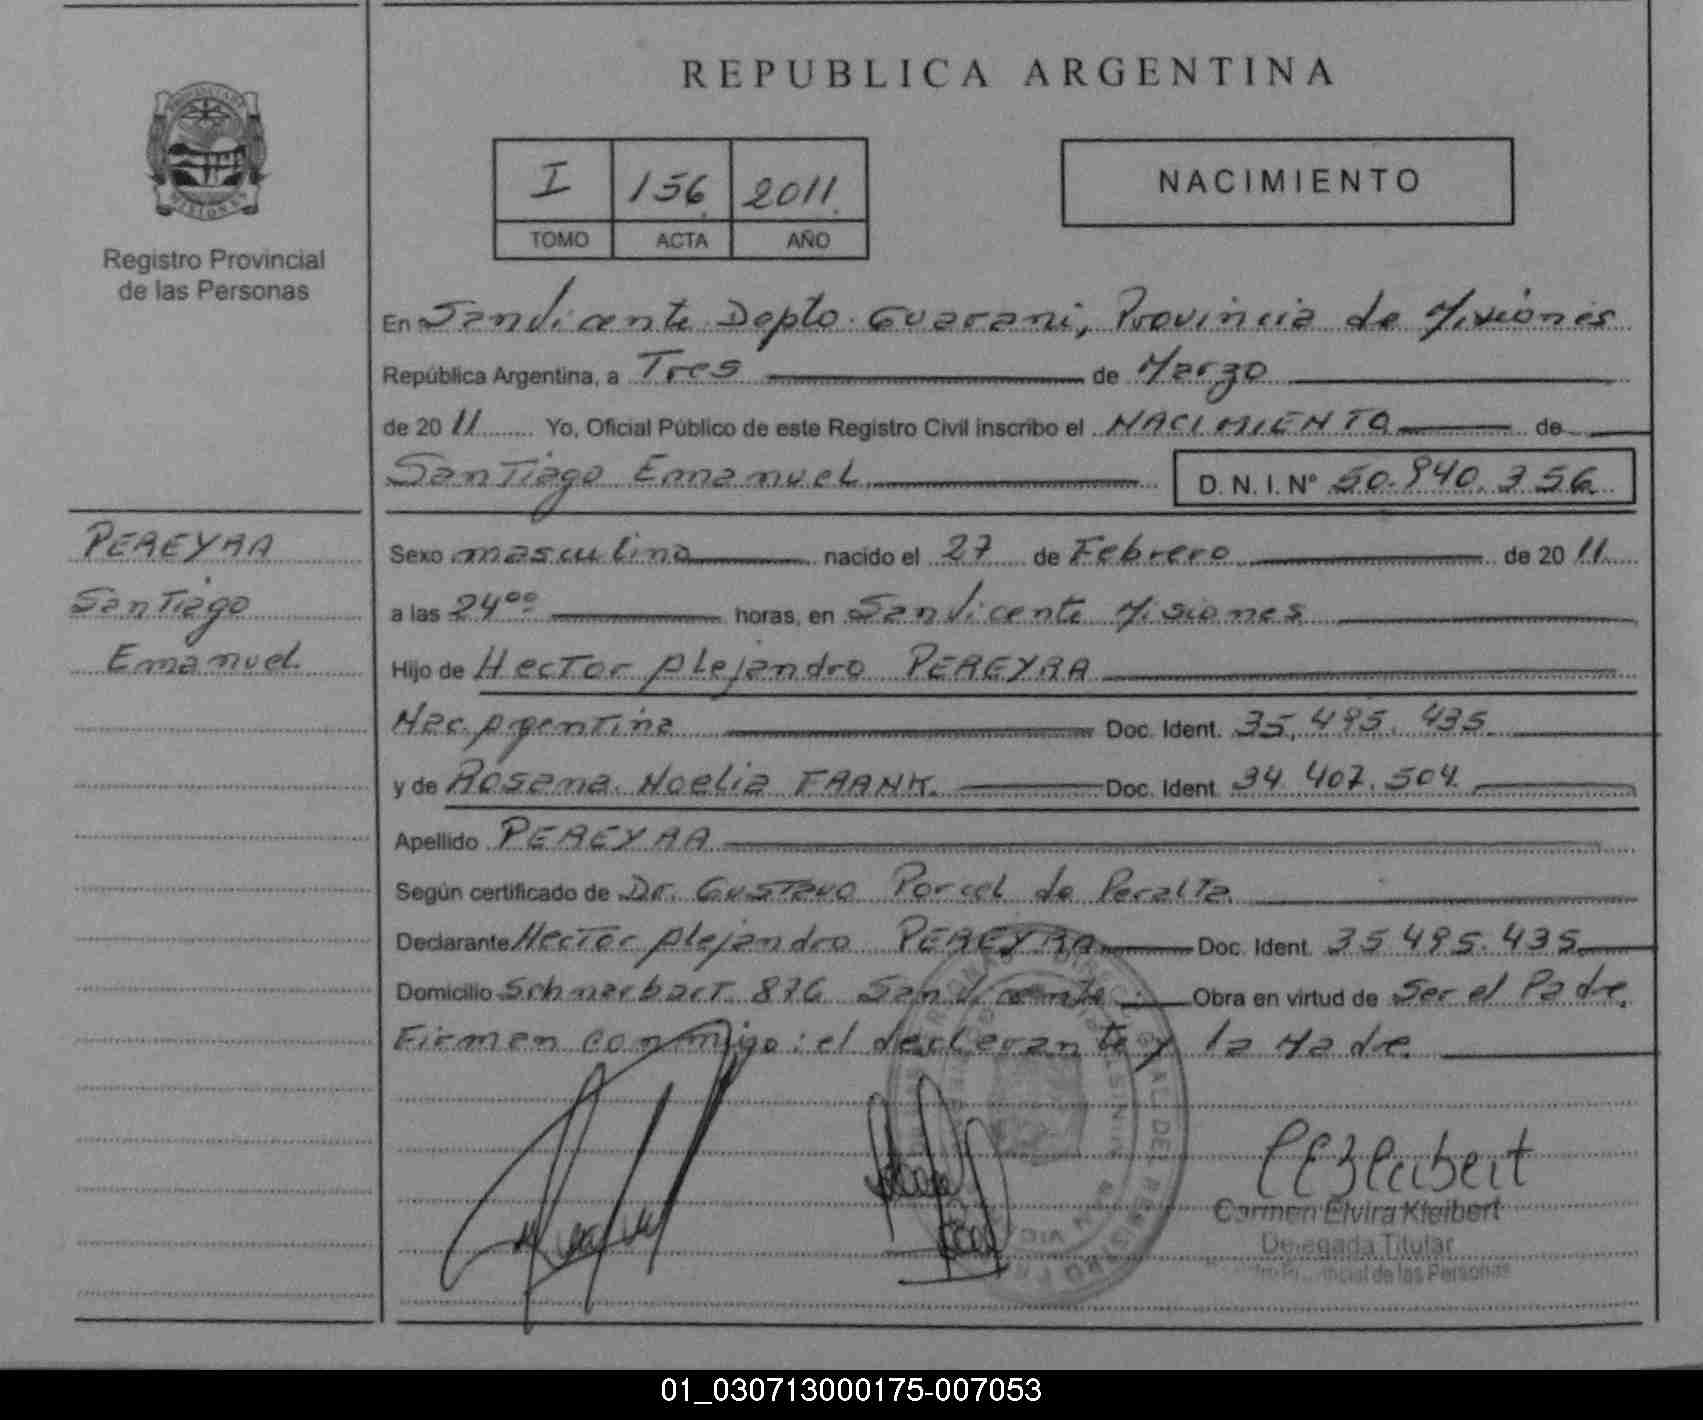 REPUBLICA ARGENTINA
PROVINCIA DE
MISIONES
Registro Provincial
de las Personas
I 156 2011
TOMO ACTA AÑO
NACIMIENTO
En San Vicente Depto. Guarani, Provincia de Misiones
República Argentina, a Tres de Marzo
de 20 11 Yo, Oficial Público de este Registro Civil inscribo el NACIMIENTO de
Santiago Emanuel D. N. I. N° 50.940.356
PEREYRA
Santiago
Emanuel
Sexo masculino nacido el 27 de Febrero de 20 11
a las 24°° horas, en San Vicente Misiones
Hijo de Hector Alejandro PEREYRA
Nac. Argentina Doc. Ident. 35.495.435
y de Rosana Noelia FRANK. Doc. Ident. 34.407.504
Apellido PEREYRA
Según certificado de Dr. Gustavo Porcel de Peralta
Declarante Hector Alejandro PEREYRA Doc. Ident. 35.495.435
Domicilio 876 San Vicente Obra en virtud de Ser el Padre.
Firman conmigo: el declarante y la Madre
Carmen Elvira Kleibert
Delegada Titular
Provincial de las Personas
01_030713000175-007053